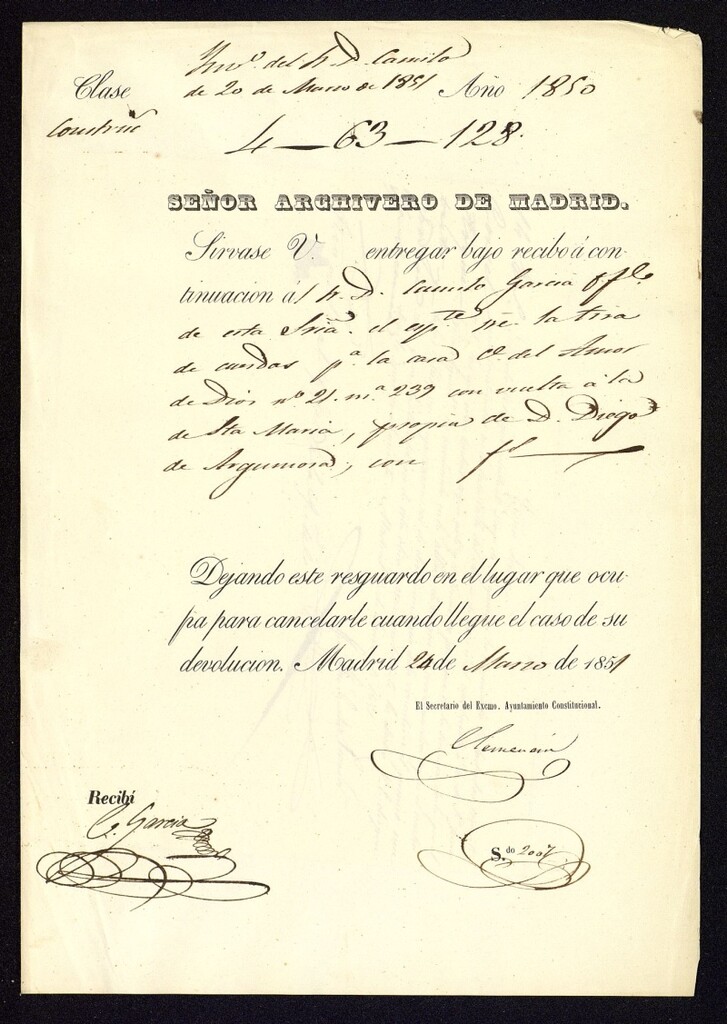 del Sr. D. Camilo
Clase de 20 de Marzo de 1851 Año 1850
4 — 63 — 128.
SEÑOR ARCHIVERO DE MADRID.
Sírvase V. entregar bajo recibo á con-
tinuacion ál Sr. D. Camilo Garcia ofl.
de esta Sria. el expte. de la tira
de cuerdas pa. la casa C. del Amor
de Dios nº 21. m.ª 239 con vuelta á la
de Sta Maria, propia de D. Diego
de Argumosa, con
Dejando este resguardo en el lugar que ocu-
pa para cancelarle cuando llegue el caso de su
devolucion. Madrid 24 de Marzo de 1851
El Secretario del Excmo. Ayuntamiento Constitucional.
Clemencin
Recibí
C. Garcia
S.do 2007